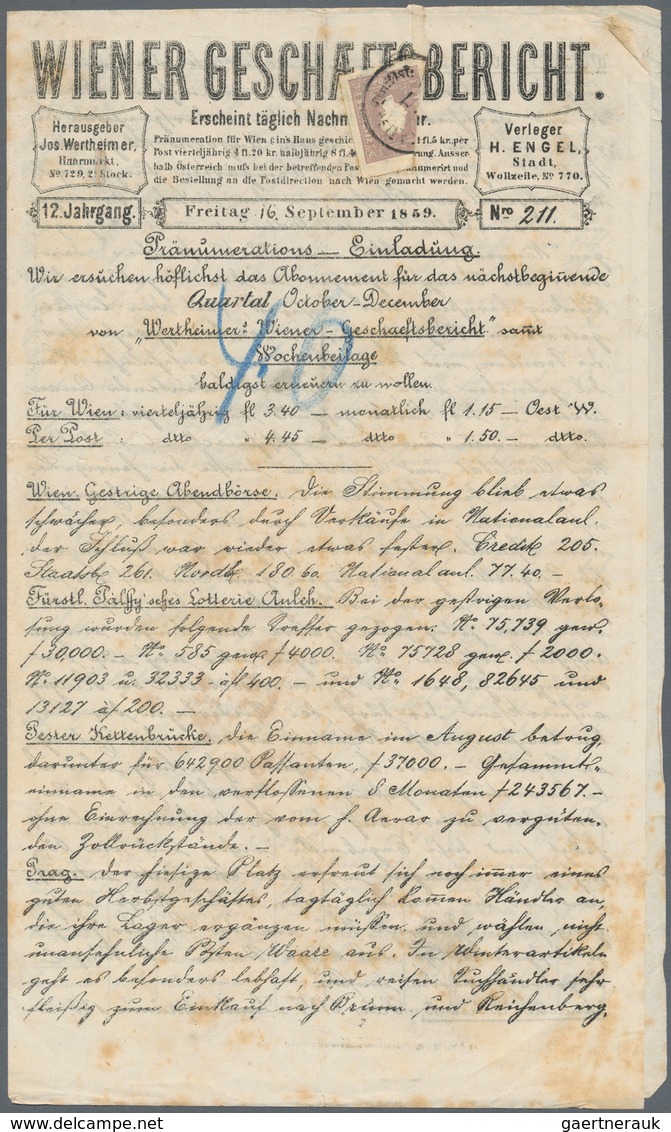 WIENER GESCHÆFTSBERICHT.
Erscheint täglich Nachm
Herausgeber
Jos. Wertheimer,
Haarmarkt,
No 729, 2r Stock.
Pränumeration für Wien (ins Haus geschic 1 fl. 5 kr. per
Post vierteljährig 4 fl. 20 kr. halbjährig 8 fl. 4 rung. Ausser-
halb Österreich muſs bei der betreffenden Pos numerirt und
die Bestellung an die Postdirection nach Wien gemacht werden.
Verleger
H. ENGEL,
Stadt,
Wollzeile, No 770.
12. Jahrgang.
Freitag 16. September 1859.
Nro 211.
Pränumerations – Einladung.
Wir ersuchen höflichst das Abonnement für das nächstbeginnende
Quartal October–December
von „Wertheimer's Wiener–Geschaeftsbericht" sammt
Wochenbeilage
baldigst erneuern zu wollen.
40
Für Wien: vierteljährig fl 3.40 – monatlich fl 1.15 – Oest W.
Per Post : dtto " 4.45 – dtto " 1.50. – dtto.
Wien. Gestrige Abendbörse. Die Stimmung blieb etwas
schwächer, besonders durch Verkäufe in Nationalanl.
der Schluß war wieder etwas fester. Credit 205.
Staatsb 261. Nordb 180.60. Nationalanl. 77.40. –
Fürstl. Pálffy'sches Lotterie Anleh. Bei der gestrigen Verlo-
sung wurden folgende Treffer gezogen: No 75,739 gew.
f 30,000. – No 585 gew f 4000. No 75728 gew. f 2000.
No 11903 u. 32333 à fl 400. – und No 1648, 82645 und
13127 à f 200. –
Pester Kettenbrücke. Die Einname im August betrug,
darunter für 642900 Passanten, f 37000. – Gesammts-
einname in den verflossenen 8 Monaten f 243567. –
ohne Einrechnung der vom h. Aerar zu vergüten-
den Zollrückstände. –
Prag. Der hiesige Platz erfreut sich noch immer eines
guten Herbstgeschäftes, tagtäglich kommen Händler an,
die ihre Lager ergänzen müssen, und wählen nicht
unansehnliche Posten Waare aus. In Winterartikeln
geht es besonders lebhaft, und reisen Tuchhändler sehr
fleißig zum Einkauf nach Brünn und Reichenberg.
gaertnerauk